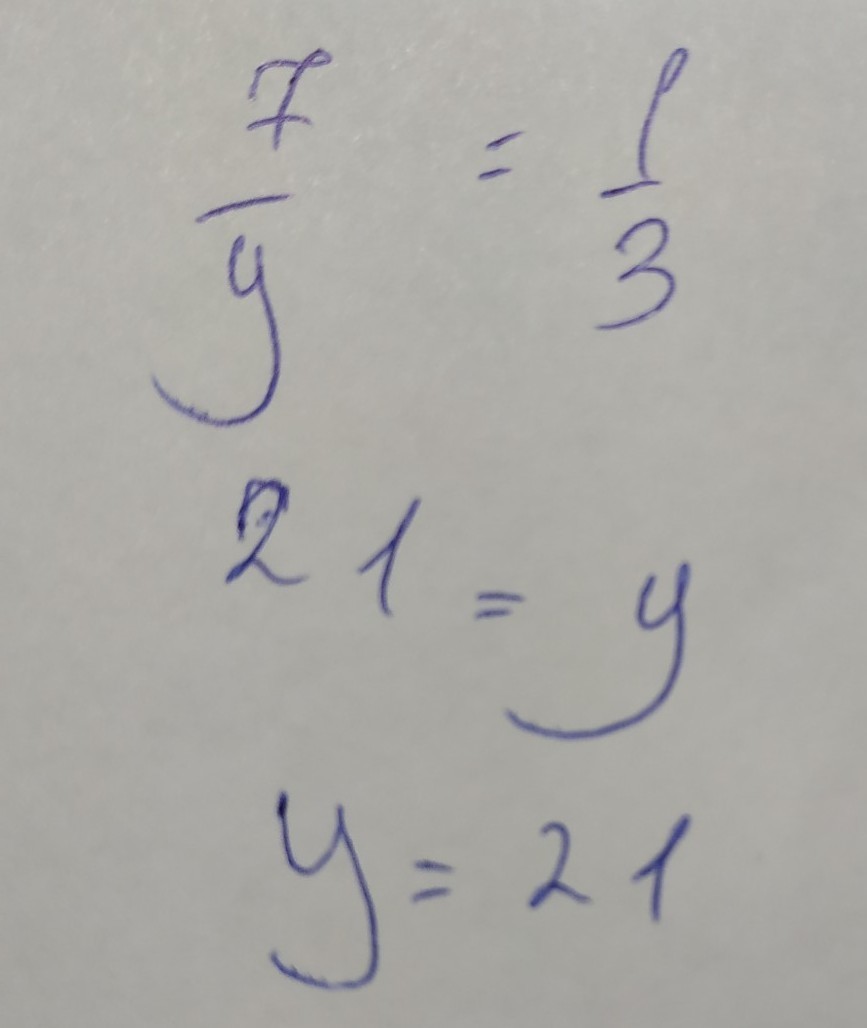 7/y = 1/3
21 = y
y = 21